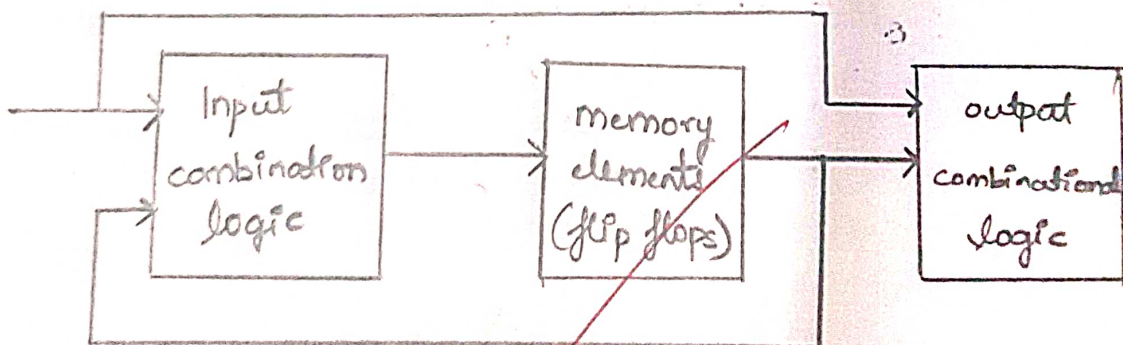 Input
combination
logic
memory
elements
(flip flops)
output
combinational
logic